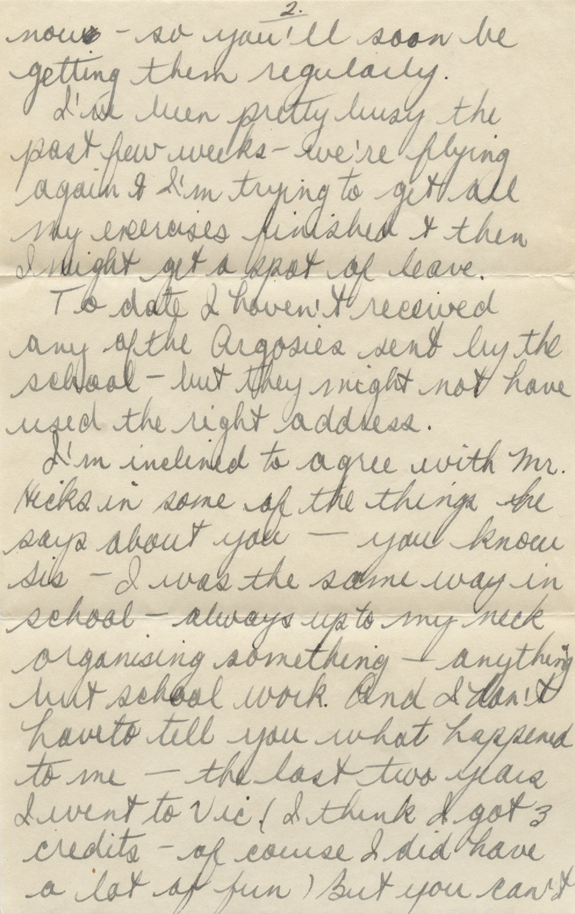 2.
now - so you'll soon be
getting them regularly.
I've been pretty busy the
past few weeks - we're flying
again & I'm trying to get all
my exercises finished & then
I might get a spot of leave.
To date I haven't received
any of the Argosies sent by the
school - but they might not have
used the right address.
I'm inclined to agree with Mr.
Hicks in some of the things he
says about you — you know
Sis - I was the same way in
school - always up to my neck
organising something - anything
but school work. And I don't
have to tell you what happened
to me - the last two years
I went to Vic. (I think I got 3
credits - of course I did have
a lot of fun) But you can't